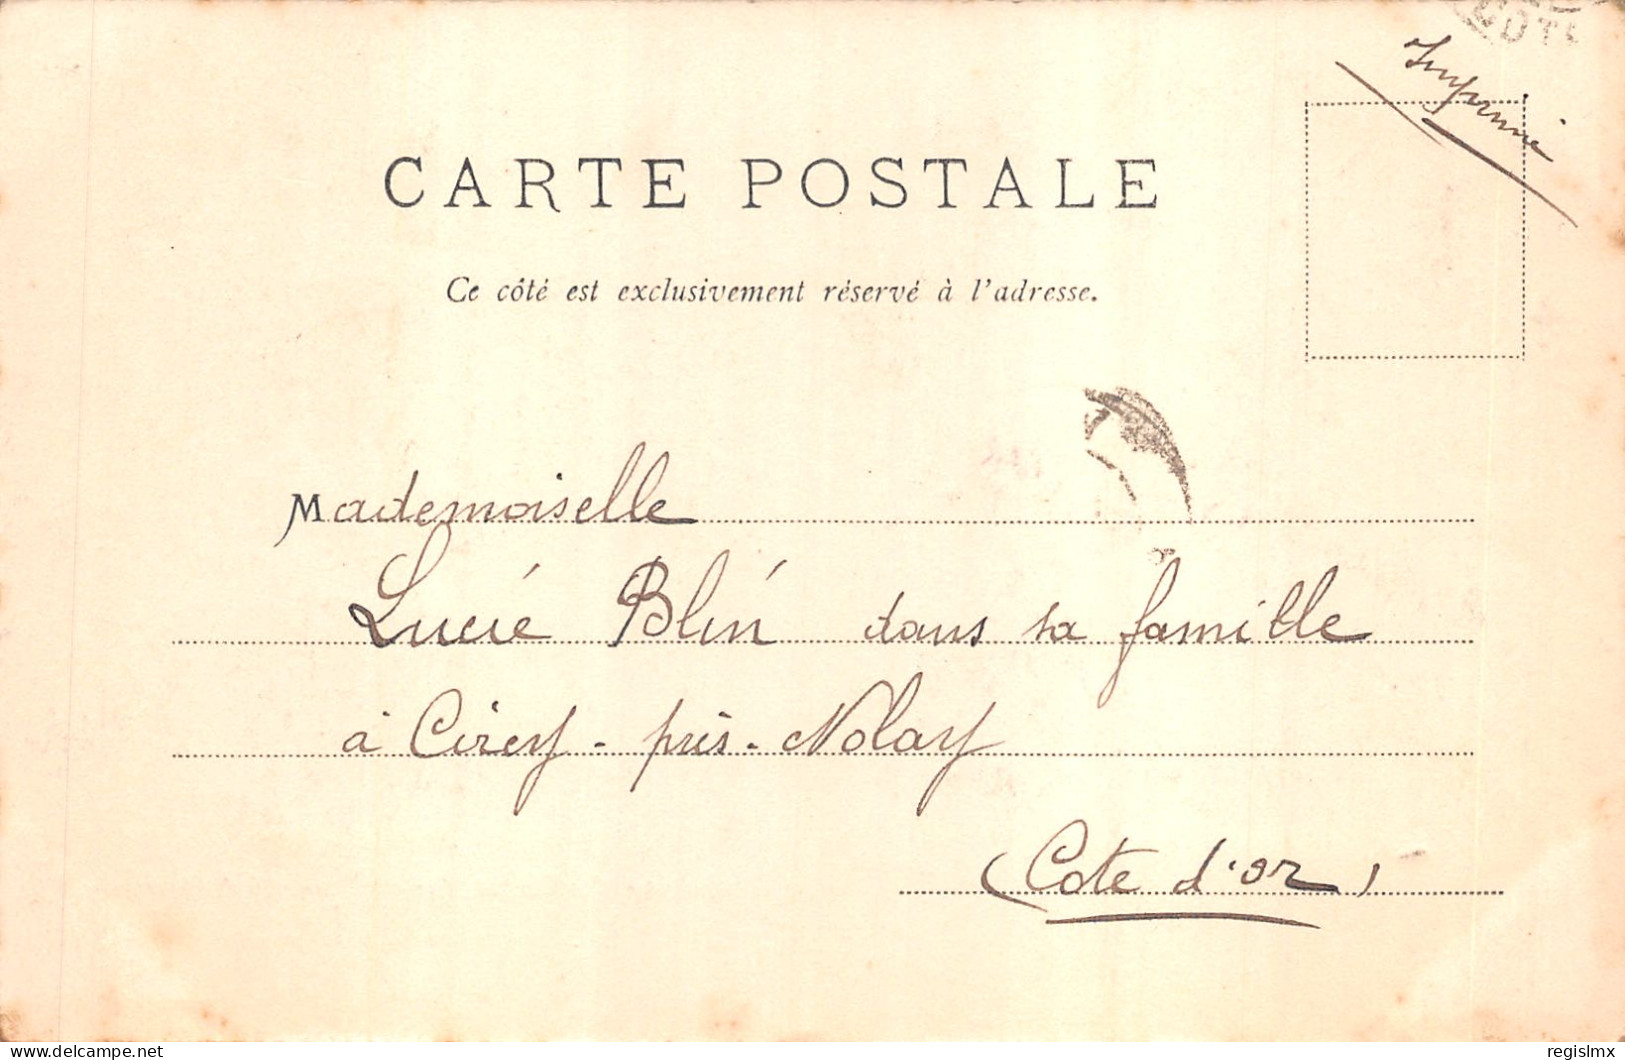 Imprimé
CARTE POSTALE
Ce côté est exclusivement réservé à l'adresse.
Mademoiselle
Lucie Blin dans sa famille
à Cirey - près - Nolay
(Cote d'or)
delcampe.net
regislmx